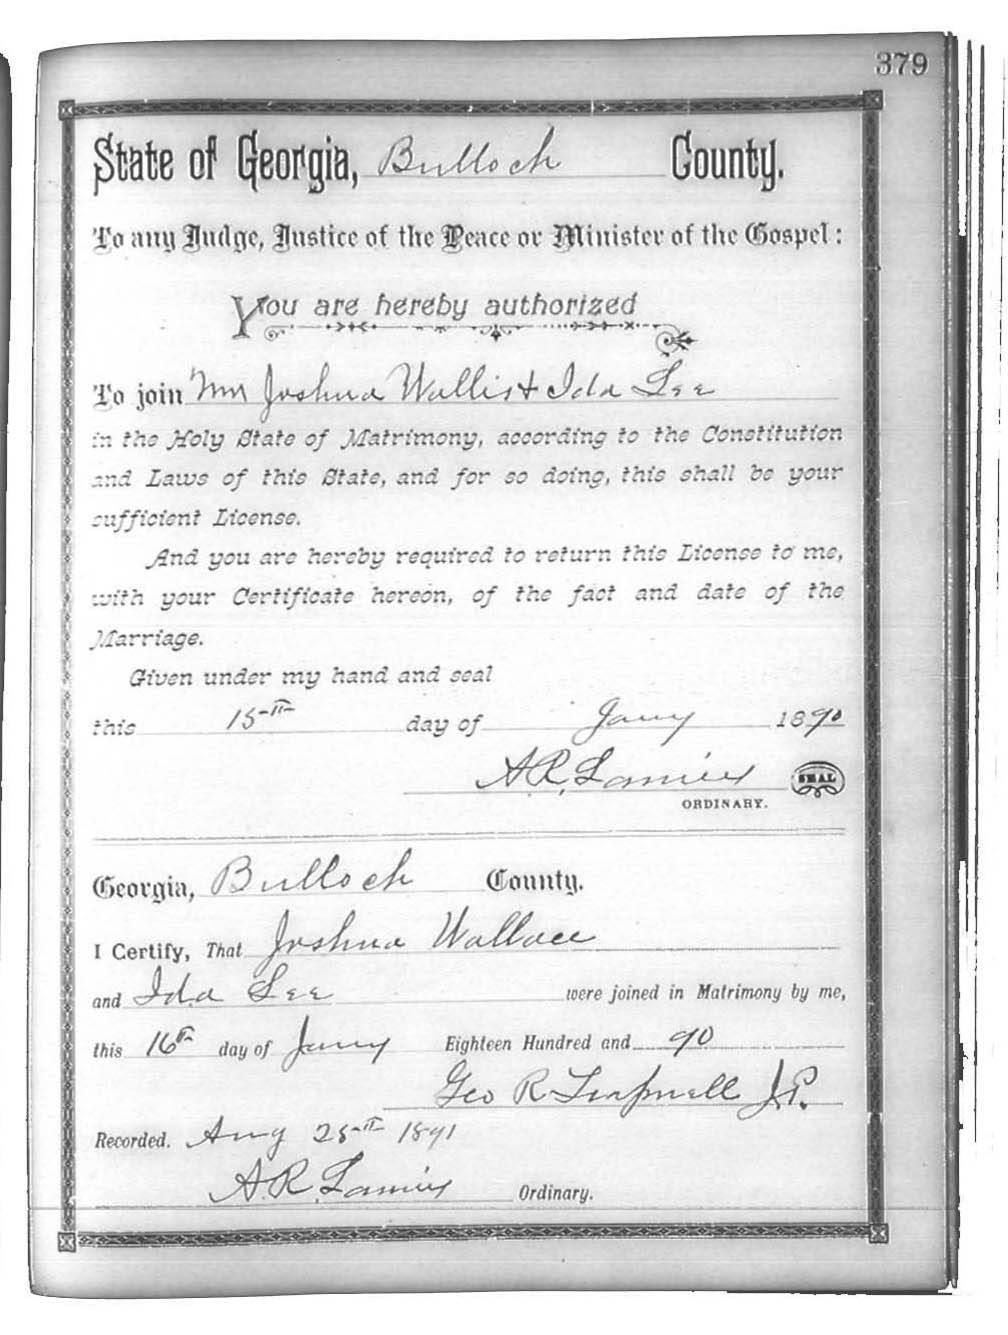 379
State of Georgia, Bulloch County.
To any Judge, Justice of the Peace or Minister of the Gospel:
You are hereby authorized
To join Mr Joshua Wallis & Ida Lee
in the Holy State of Matrimony, according to the Constitution
and Laws of this State, and for so doing, this shall be your
sufficient License.
And you are hereby required to return this License to me,
with your Certificate hereon, of the fact and date of the
Marriage.
Given under my hand and seal
this 15th day of Jany 1890
A.R. Lanier SEAL
ORDINARY.
Georgia, Bulloch County.
I Certify, That Joshua Wallace
and Ida Lee were joined in Matrimony by me,
this 16th day of Jany Eighteen Hundred and 90
Geo R J.P.
Recorded. Aug 25th 1891
A.R. Lanier Ordinary.